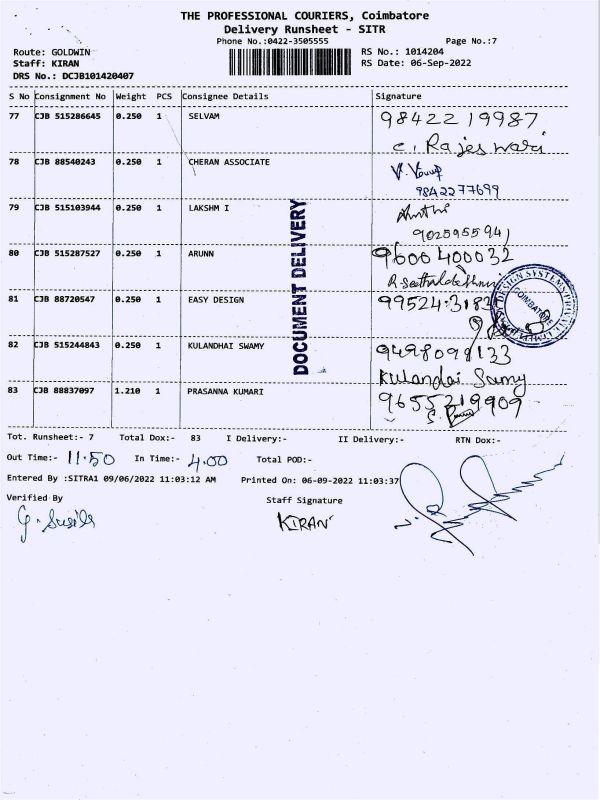 THE PROFESSIONAL COURIERS, Coimbatore
Delivery Runsheet - SITR
Phone No.:0422-3505555 Page No.:7
Route: GOLDWIN RS No.: 1014204
Staff: KIRAN RS Date: 06-Sep-2022
DRS No.: DCJB101420407
S No Consignment No Weight PCS Consignee Details Signature
77 CJB 515286645 0.250 1 SELVAM 9842219987
C. Rajeswari
78 CJB 88540243 0.250 1 CHERAN ASSOCIATE
9842277699
79 CJB 515103944 0.250 1 LAKSHM I
9025955941
80 CJB 515287527 0.250 1 ARUNN 9600400032
81 CJB 88720547 0.250 1 EASY DESIGN
82 CJB 515244843 0.250 1 KULANDHAI SWAMY 9498098133
Kulandai Samy
83 CJB 88837097 1.210 1 PRASANNA KUMARI 9655219909
DOCUMENT DELIVERY
DESIGN SYSTEMS PRIVATE
COIMBATORE
Tot. Runsheet:- 7 Total Dox:- 83 I Delivery:- II Delivery:- RTN Dox:-
Out Time:- 11.50 In Time:- 4.00 Total POD:-
Entered By :SITRA1 09/06/2022 11:03:12 AM Printed On: 06-09-2022 11:03:37
Verified By Staff Signature
G. Susila KIRAN